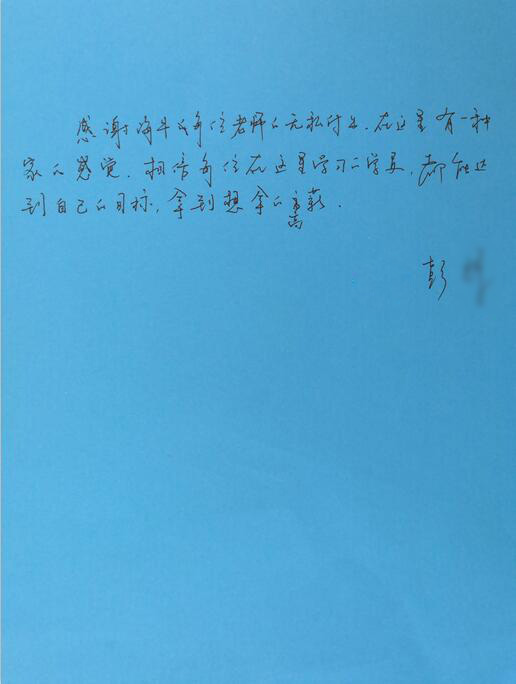 感谢海牛的每位老师的无私付出.在这里有一种
家的感觉.相信每位在这里学习的学员,都能达
到自己的目标,拿到想拿的高薪.
彭